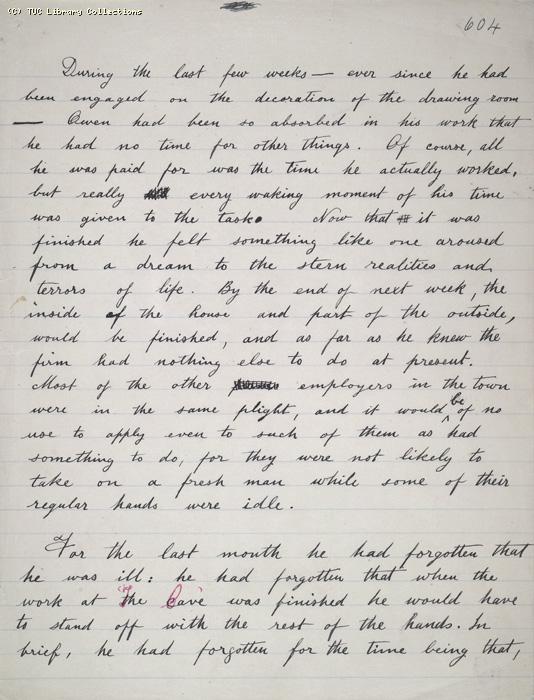 (C) TUC Library Collections
604
During the last few weeks — ever since he had
been engaged on the decoration of the drawing room
— Owen had been so absorbed in his work that
he had no time for other things. Of course, all
he was paid for was the time he actually worked,
but really every waking moment of his time
was given to the task. Now that it was
finished he felt something like one aroused
from a dream to the stern realities and
terrors of life. By the end of next week, the
inside of the house and part of the outside,
would be finished, and as far as he knew the
firm had nothing else to do at present.
Most of the other employers in the town
were in the same plight, and it would be of no
use to apply even to such of them as had
something to do, for they were not likely to
take on a fresh man while some of their
regular hands were idle.
For the last month he had forgotten that
he was ill: he had forgotten that when the
work at 'The Cave' was finished he would have
to stand off with the rest of the hands. In
brief, he had forgotten for the time being that,